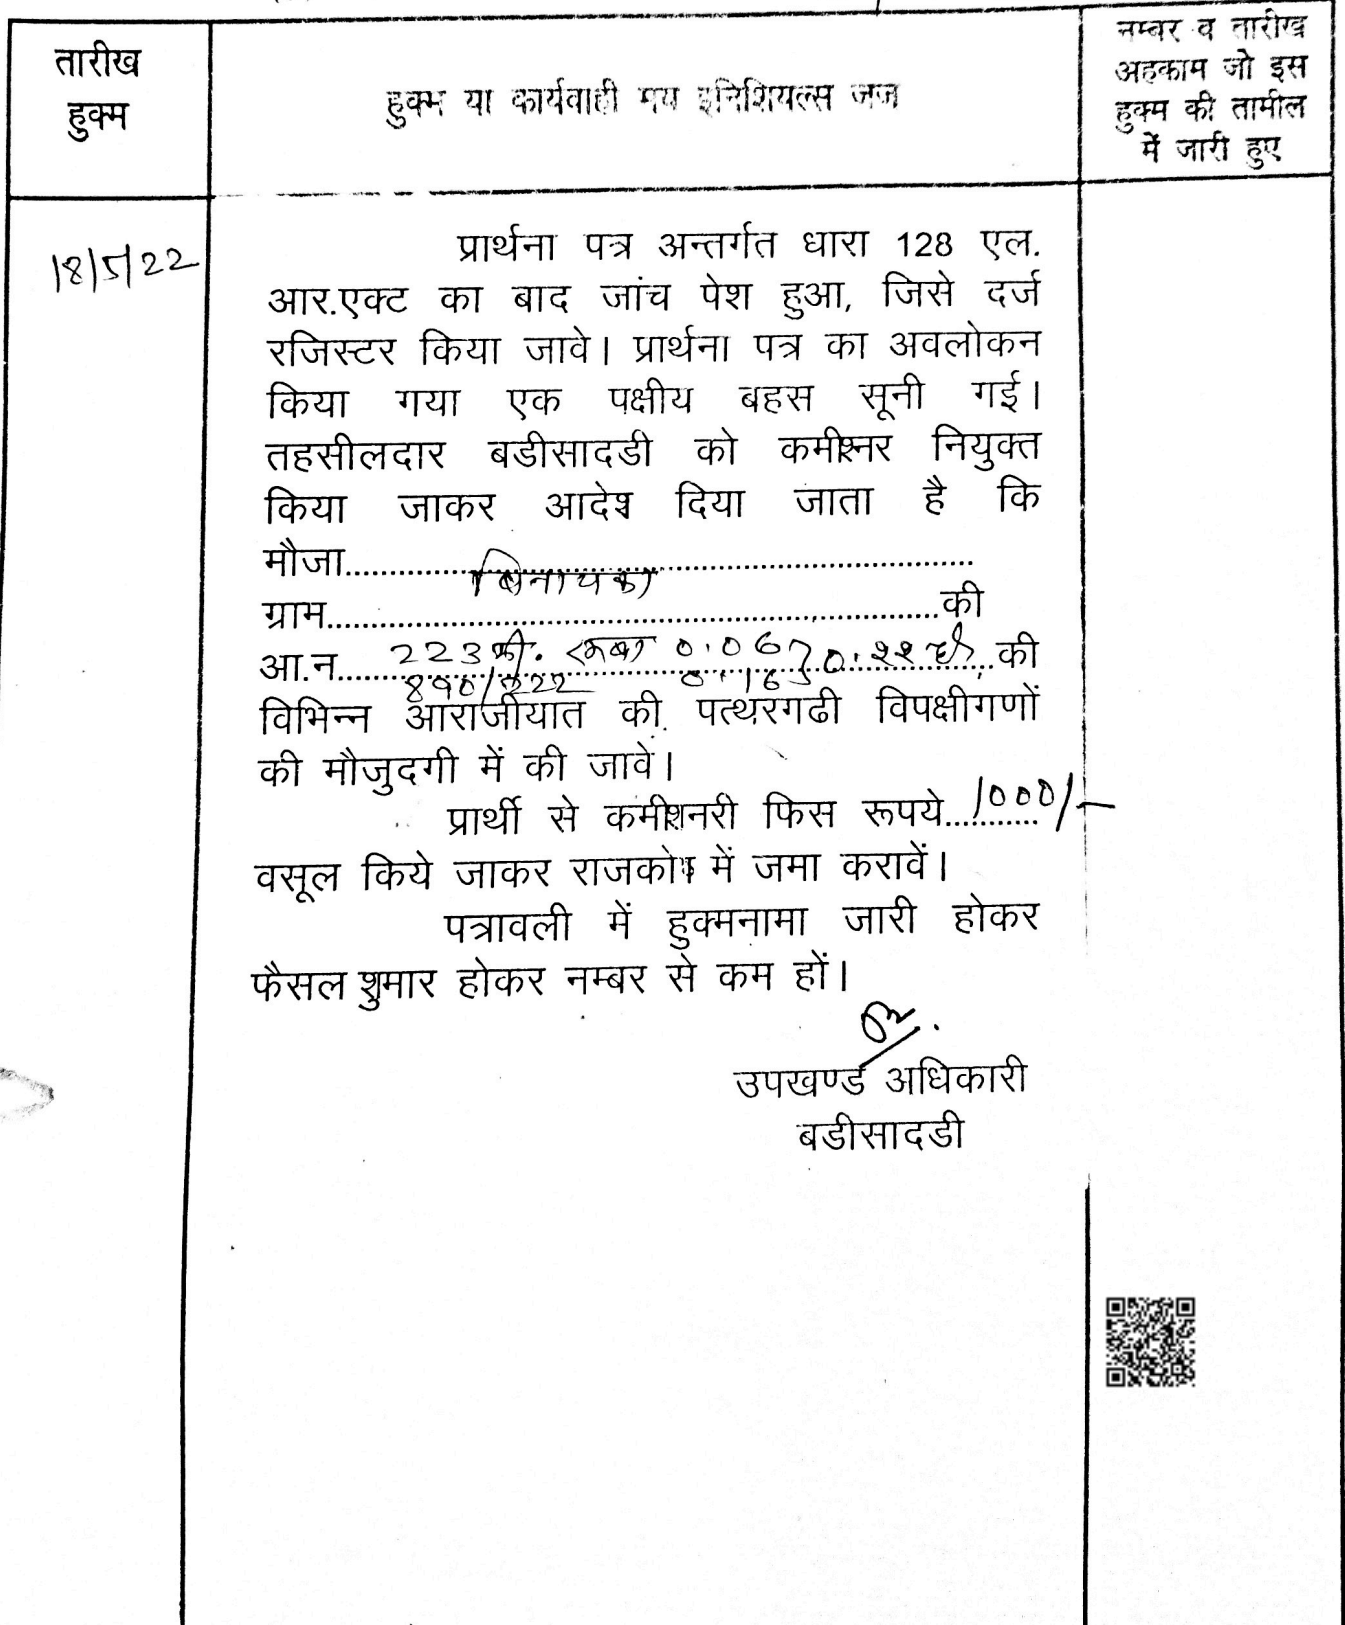 तारीख
हुक्म
हुक्म या कार्यवाही मय इनिशियल्स जज
नम्बर व तारीख
अहकाम जो इस
हुक्म की तामील
में जारी हुए
18/5/22
प्रार्थना पत्र अन्तर्गत धारा 128 एल.
आर.एक्ट का बाद जांच पेश हुआ, जिसे दर्ज
रजिस्टर किया जावे। प्रार्थना पत्र का अवलोकन
किया गया एक पक्षीय बहस सूनी गई।
तहसीलदार बडीसादडी को कमीश्नर नियुक्त
किया जाकर आदेश दिया जाता है कि
मौजा..........................................................
विनायका
ग्राम..........................................................की
आ.न.... 223 मी. रकबा 0.06 ....की
890/222 0.16
विभिन्न आराजीयात की पत्थरगढी विपक्षीगणों
की मौजुदगी में की जावे।
प्रार्थी से कमीशनरी फिस रूपये...1000/-
वसूल किये जाकर राजकोष में जमा करावें।
पत्रावली में हुक्मनामा जारी होकर
फैसल शुमार होकर नम्बर से कम हों।
उपखण्ड अधिकारी
बडीसादडी